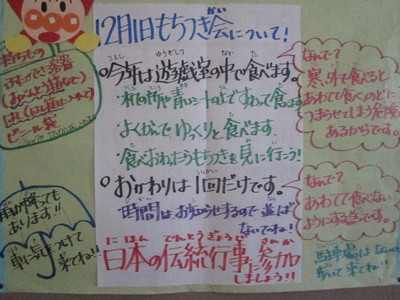 12月1日もちつき会について！
かい
ことし ゆうぎしつ なか た
○今年は遊戯室の中で食べます。
すわって食べます
よくかんでゆっくりと食べます。
・食べおわったらもちつきを見に行こう！
○おかわりは1回だけです。
時間はお知らせするので並ばないでね！
にほん でんとうぎょうじ さんか
日本の伝統行事に参加しましょう!!
なんで？
寒い外で食べると
あわてて食べてのどに
つまらせてしまう危険が
あるからです。
なんで？
あわてて食べない
ようにする為です。
駐車場はないので
歩いて来てね!!
持ちもの
ビニール袋
雨が降っても
あります!!
車に気をつけて
来てね!!